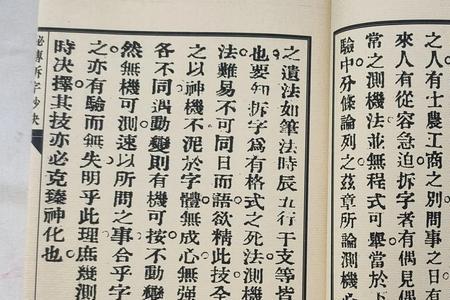 之人有士農工商之別問事之日有
來人有從容急迫拆字者有偶見偶
常之測機法並無程式可舉當於下
驗中分條論列之茲章所論測機
之遺法如筆法時辰五行干支等皆
也要知拆字爲有格式之死法測機
法難易不可同日而語欲精此技全
之以神機不泥於字體無成心無強
各不同遇動變則有機可按不動變
然無機可測速以所問之事合乎字
之亦有驗而無失明乎此理庶幾測
時決擇其技亦必克臻神化也
秘傳拆字妙訣